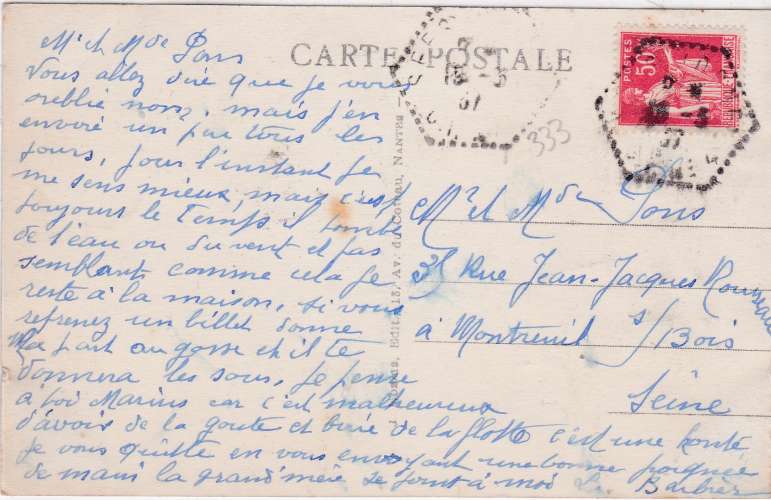 CARTE POSTALE
Mr et Mde Pons
Vous allez dire que je vous
oublie non, mais j'en
envoie un peu tous les
jours, pour l'instant je
me sens mieux, mais c'est
toujours le temps il tombe
de l'eau ou du vent et pas
semblant comme cela je
reste à la maison, si vous
reprenez un billet donne
Ma part au gosse et il te
donnera les sous, je pense
a toi Marius car c'est malheureux
d'avoir de la goute et boire de la flotte c'est une honte
je vous quitte en vous envoyant une bonne poignée
de main la grand'mère se joint à moi Le Barbier
POSTES
50
333
Mr et Mde Pons
Rue Jean-Jacques Rousseau
à Montreuil s/Bois
Seine
Edit., 15, Av. du Coteau, Nantes